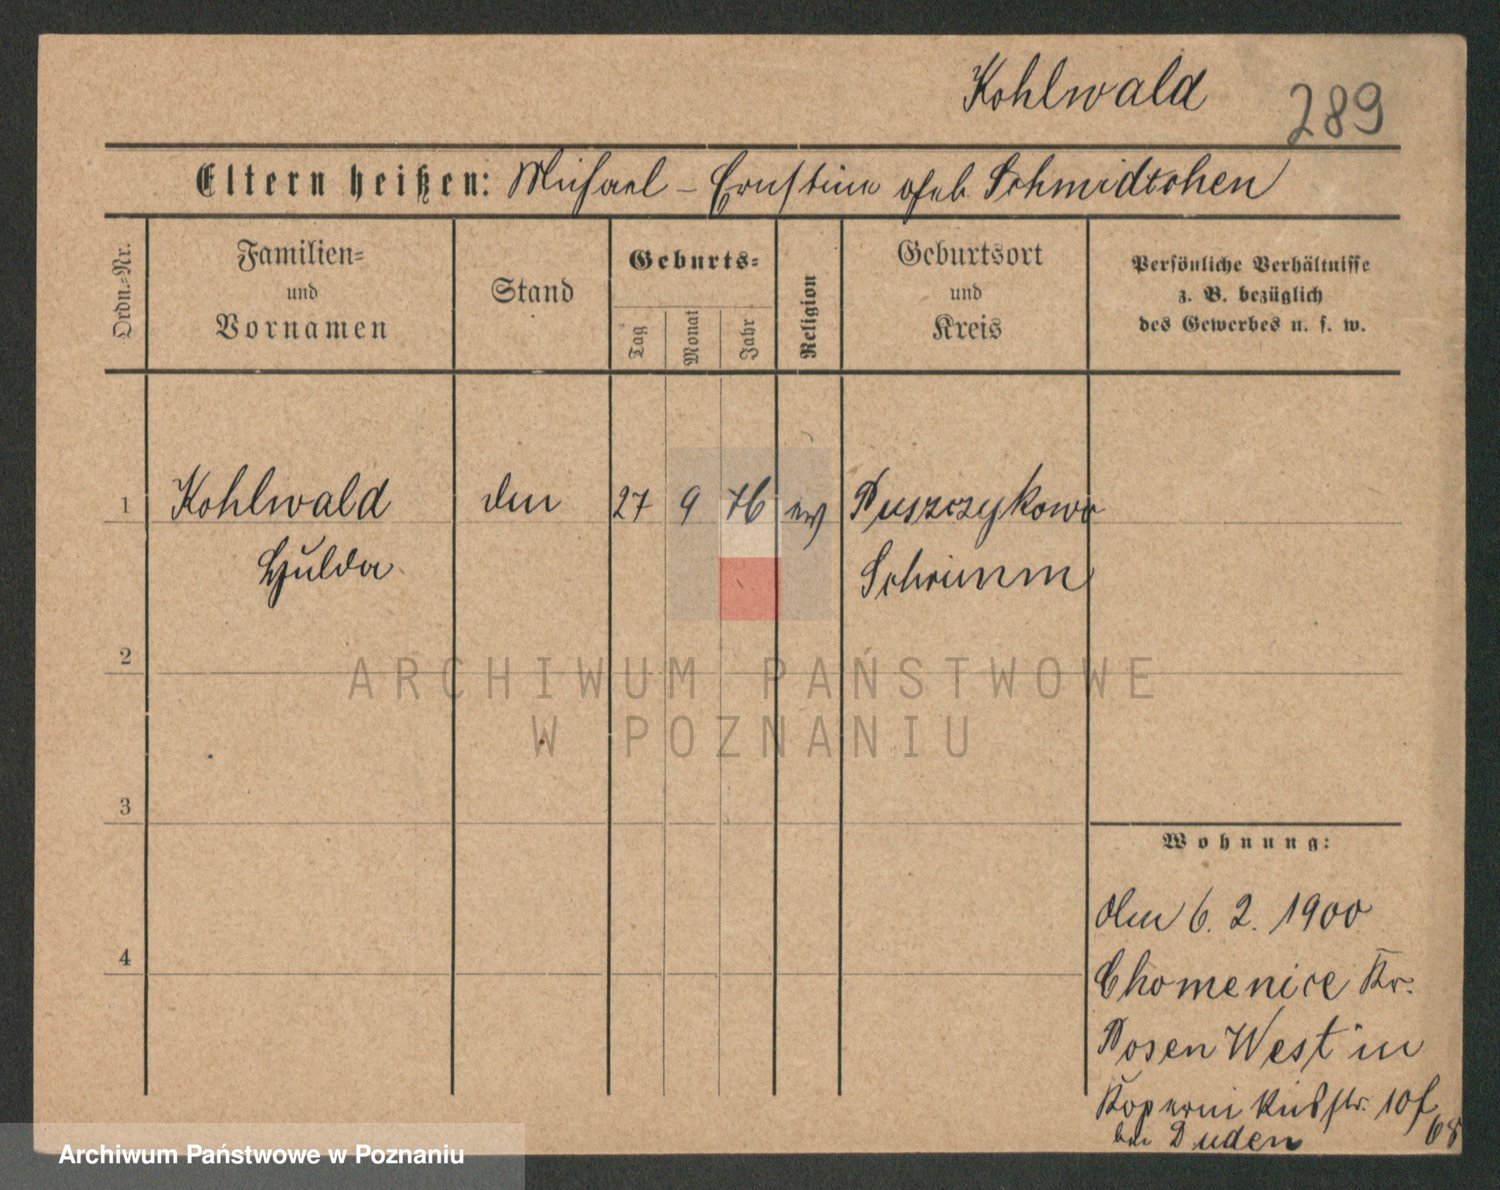 Kohlwald
289
Eltern heißen: Michael – Ernstine geb. Schmidtchen
Ordn.-Nr.
Familien-
und
Vornamen
Stand
Geburts-
Tag
Monat
Jahr
Religion
Geburtsort
und
Kreis
Persönliche Verhältnisse
z. B. bezüglich
des Gewerbes u. s. w.
1 Kohlwald 27 9 76 ev Puszczykowo
Hulda Schrimm
2
ARCHIWUM PAŃSTWOWE
W POZNANIU
3
Wohnung:
4
6. 2. 1900
Chomenice Kr.
Posen West in
Kopernikusstr. 10
bei Duden
Archiwum Państwowe w Poznaniu